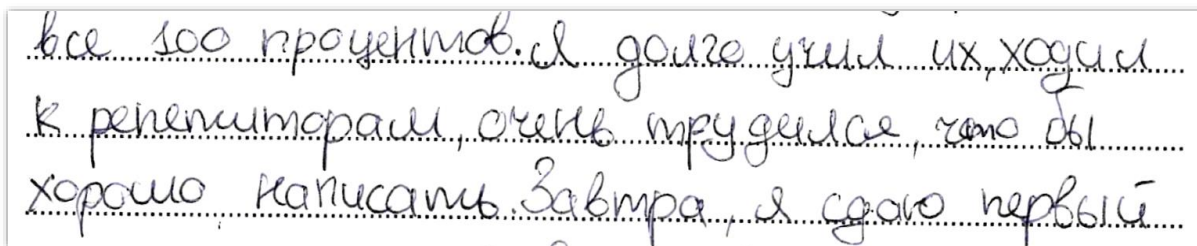 все 100 процентов. Я долго учил их, ходил
к репетиторам, очень трудился, что бы
хорошо написать. Завтра, я сдаю первый